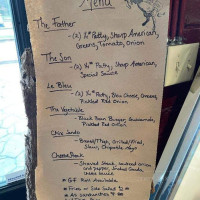 Menu
The Father
- (2) 1/4# Patty, Sharp American,
Greens, Tomato, Onion
The Son
- (2) 1/4# Patty, Sharp American,
Special Sauce
Le Bleu
- (2) 1/4# Patty, Bleu Cheese, Greens,
Pickled Red Onion
The Vegetable
- Black Bean Burger,
Pickled Red Onion
Chix Sando
- Breast/Thigh, Grilled/Fried,
Slaw, Chipotle Mayo
Cheese Steak
- Shaved Steak, sauteed onion
and pepper,
cheese sauce
GF Roll Available
Fries or Side Salad
All Sandwiches